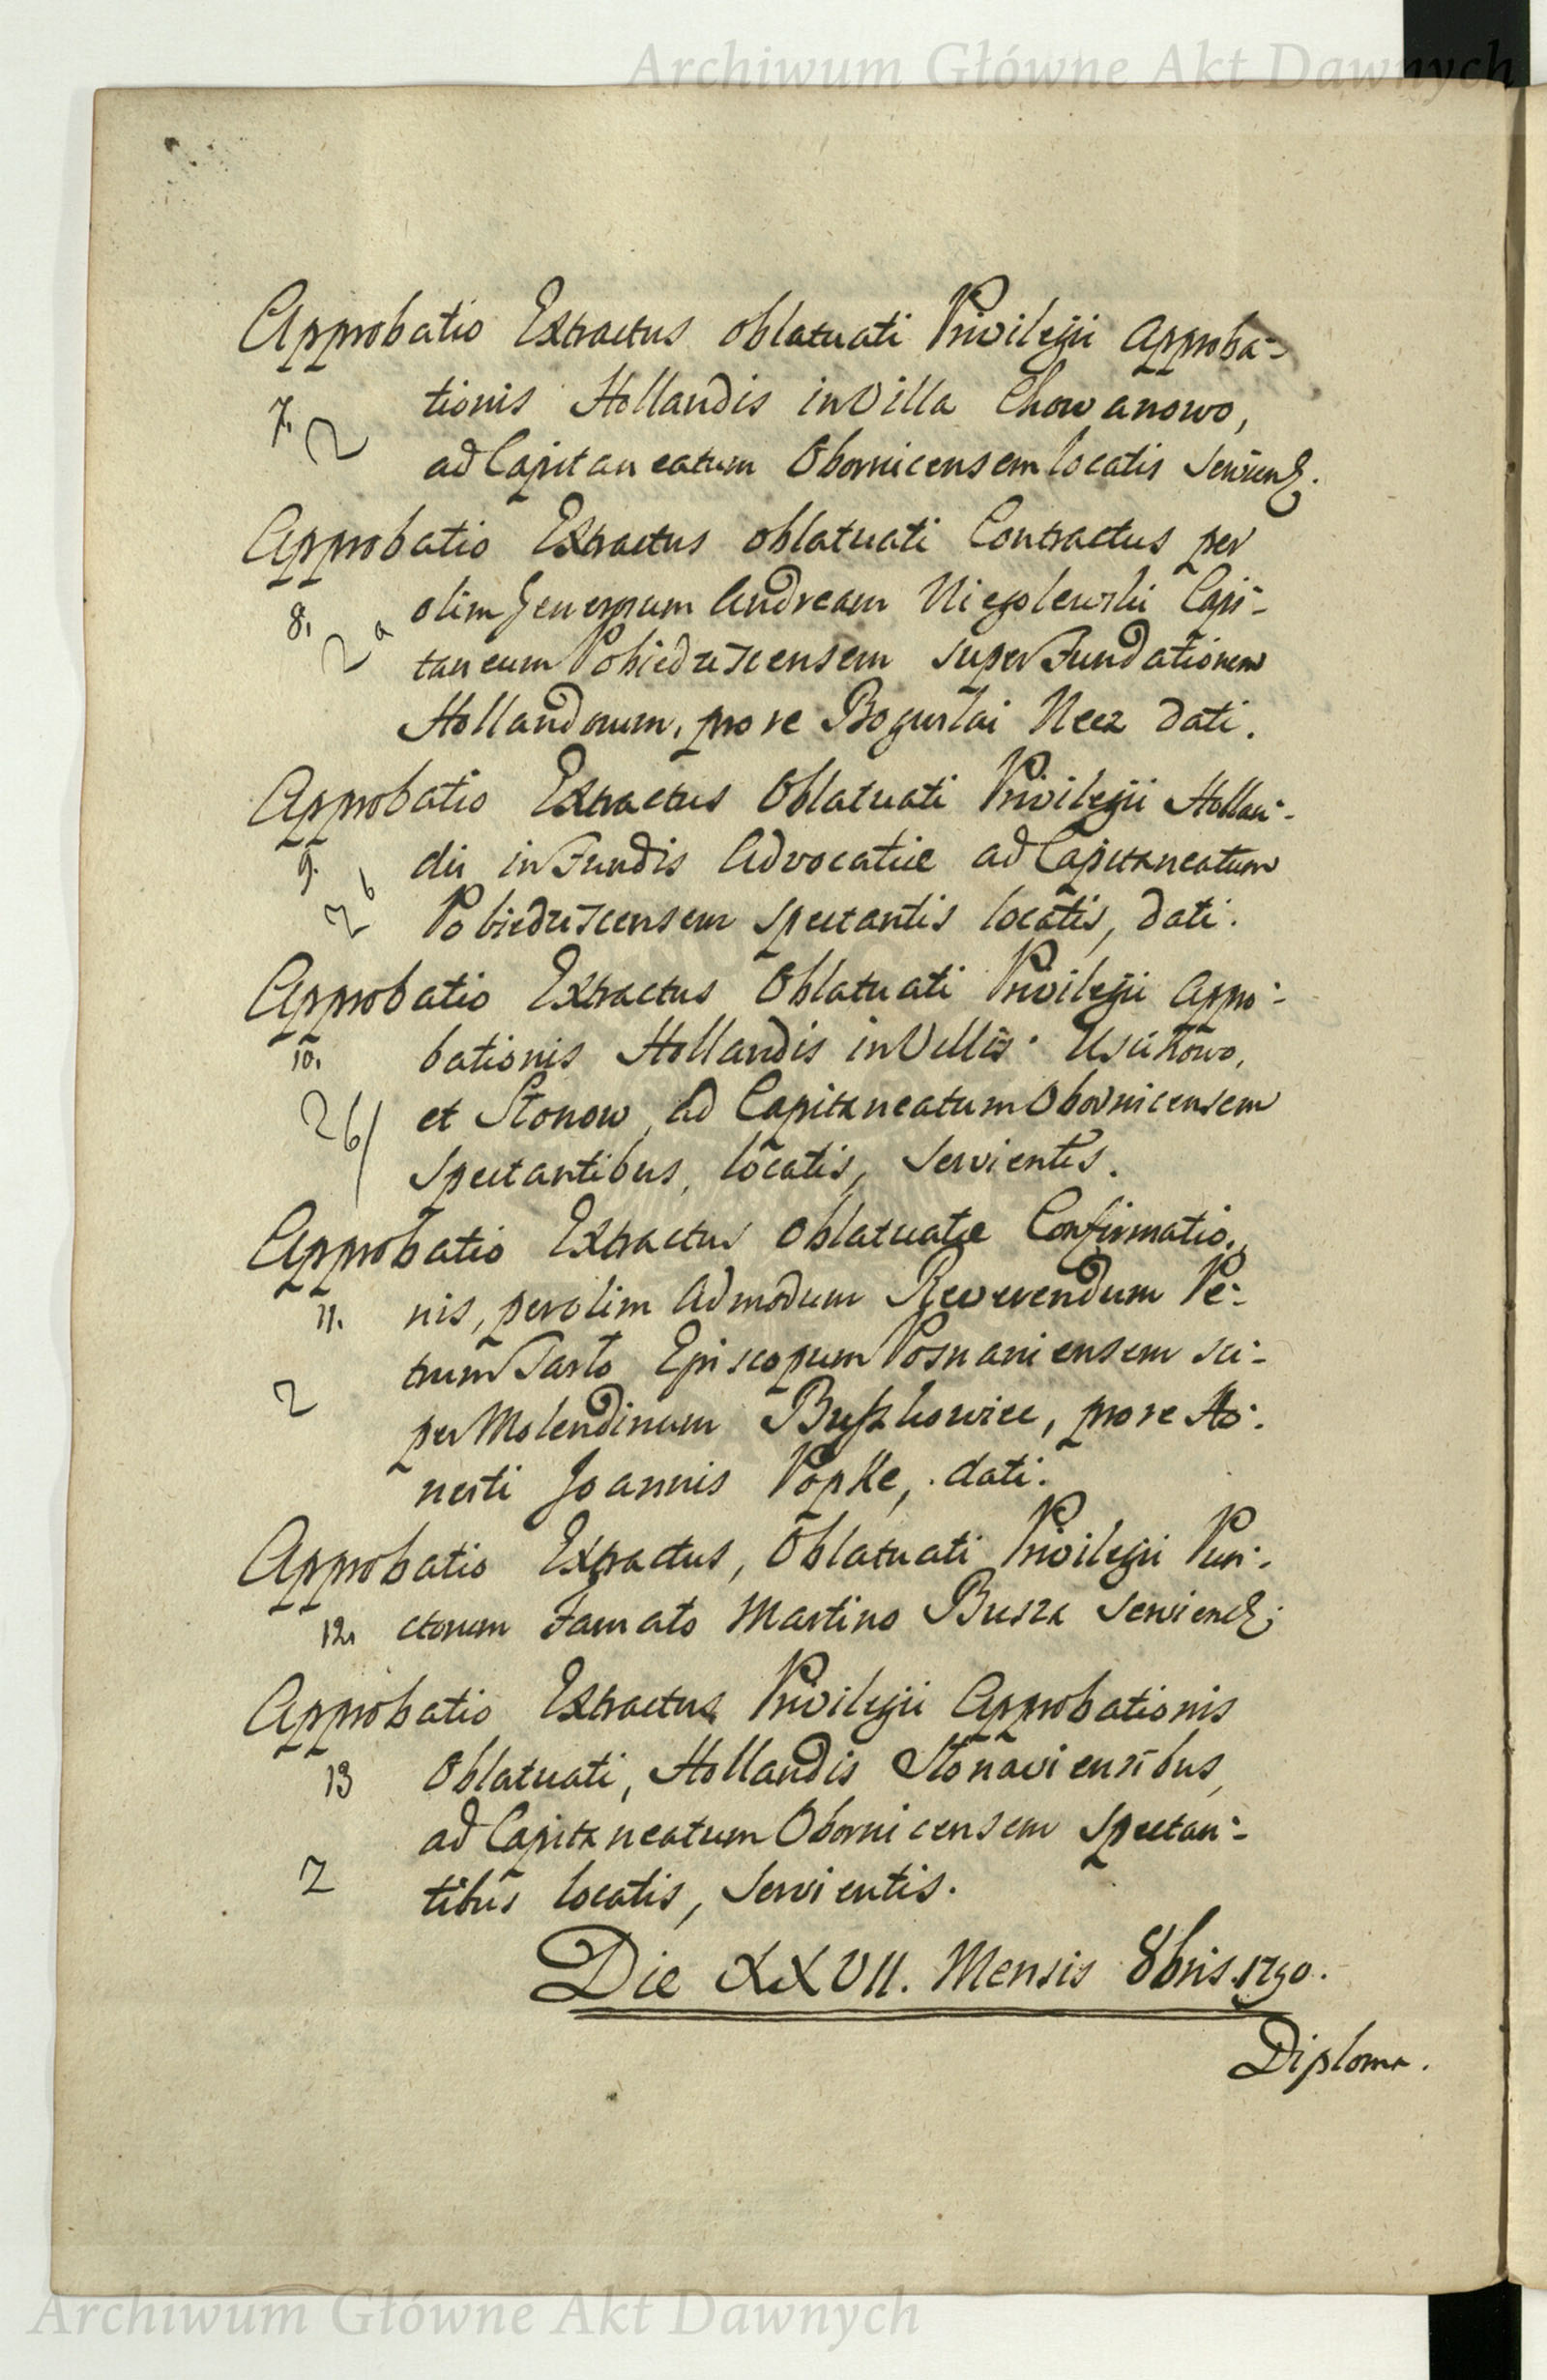 Archiwum Główne Akt Dawnych
Approbatio Extractus oblatuati Privilegii Approba-
tionis Hollandis in Villa Chowanowo,
7.
2
ad Capitaneatum Obornicensem locatis servien
Approbatio Extractus oblatuati Contractus per
olim Generosum Andream Niegolewski Capi-
8.
2 a
taneum Pobiedziscensem super Fundationem
Hollandorum, pro re Boguslai Neez dati.
Approbatio Extractus Oblatuati Privilegii Hollan-
9.
dis in Fundis Advocatiæ ad Capitaneatum
2 b
Pobiedziscensem spectantis locatis, dati.
Approbatio Extractus Oblatuati Privilegii Appro-
10.
bationis Hollandis in Villis
et Stonow, ad Capitaneatum Obornicensem
26/
spectantibus, locatis, servientis.
Approbatio Extractus Oblatuatæ Confirmatio-
11.
nis, per olim Admodum Reverendum Pe-
trum Tarło Episcopum Posnaniensem su-
2
per Molendinum Buszkowiec, pro re Ho-
nesti Joannis Popke, dati.
Approbatio Extractus, Oblatuati Privilegii Pun-
12.
ctorum Famato Martino Busza servien
Approbatio Extractus Privilegii Approbationis
13
Oblatuati, Hollandis Stonaviensibus,
ad Capitaneatum Obornicensem spectan-
2
tibus locatis, servientis.
Die XXVII. Mensis 8bris. 1790.
Diploma.
Archiwum Główne Akt Dawnych